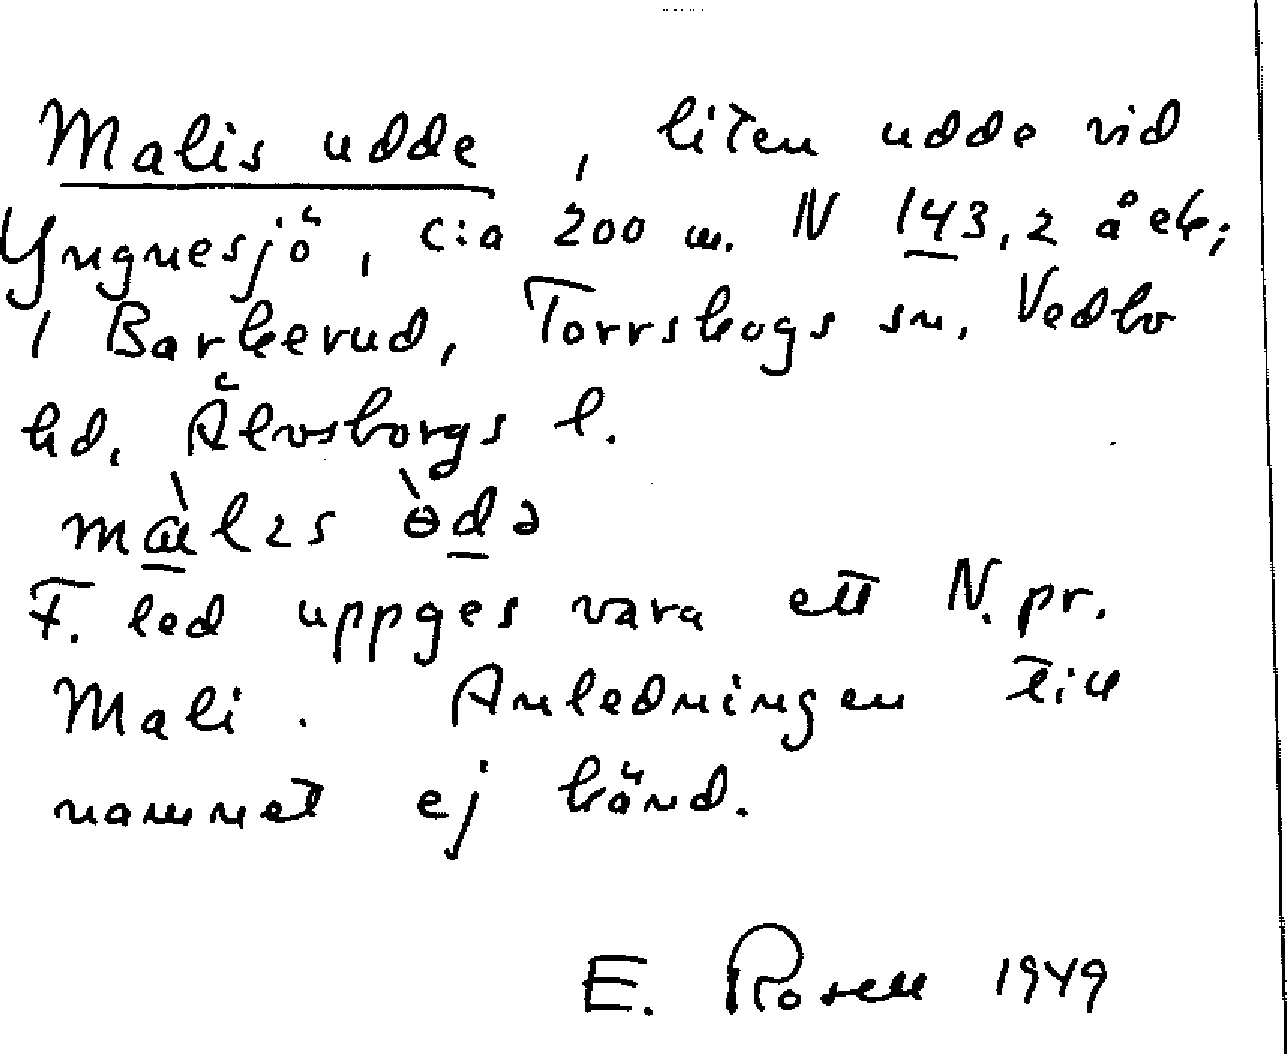 Malis udde, liten udde vid
Yngnesjö, c:a 200 m. N 143,2 å ek;
i Barkerud, Torrskogs sn. Vedbo
hd, Älvsborgs l.
mæ̀lɪs ɵ̀də
F. led uppges vara ett N.pr.
Mali. Anledningen till
namnet ej känd.
E. Rosell 1949